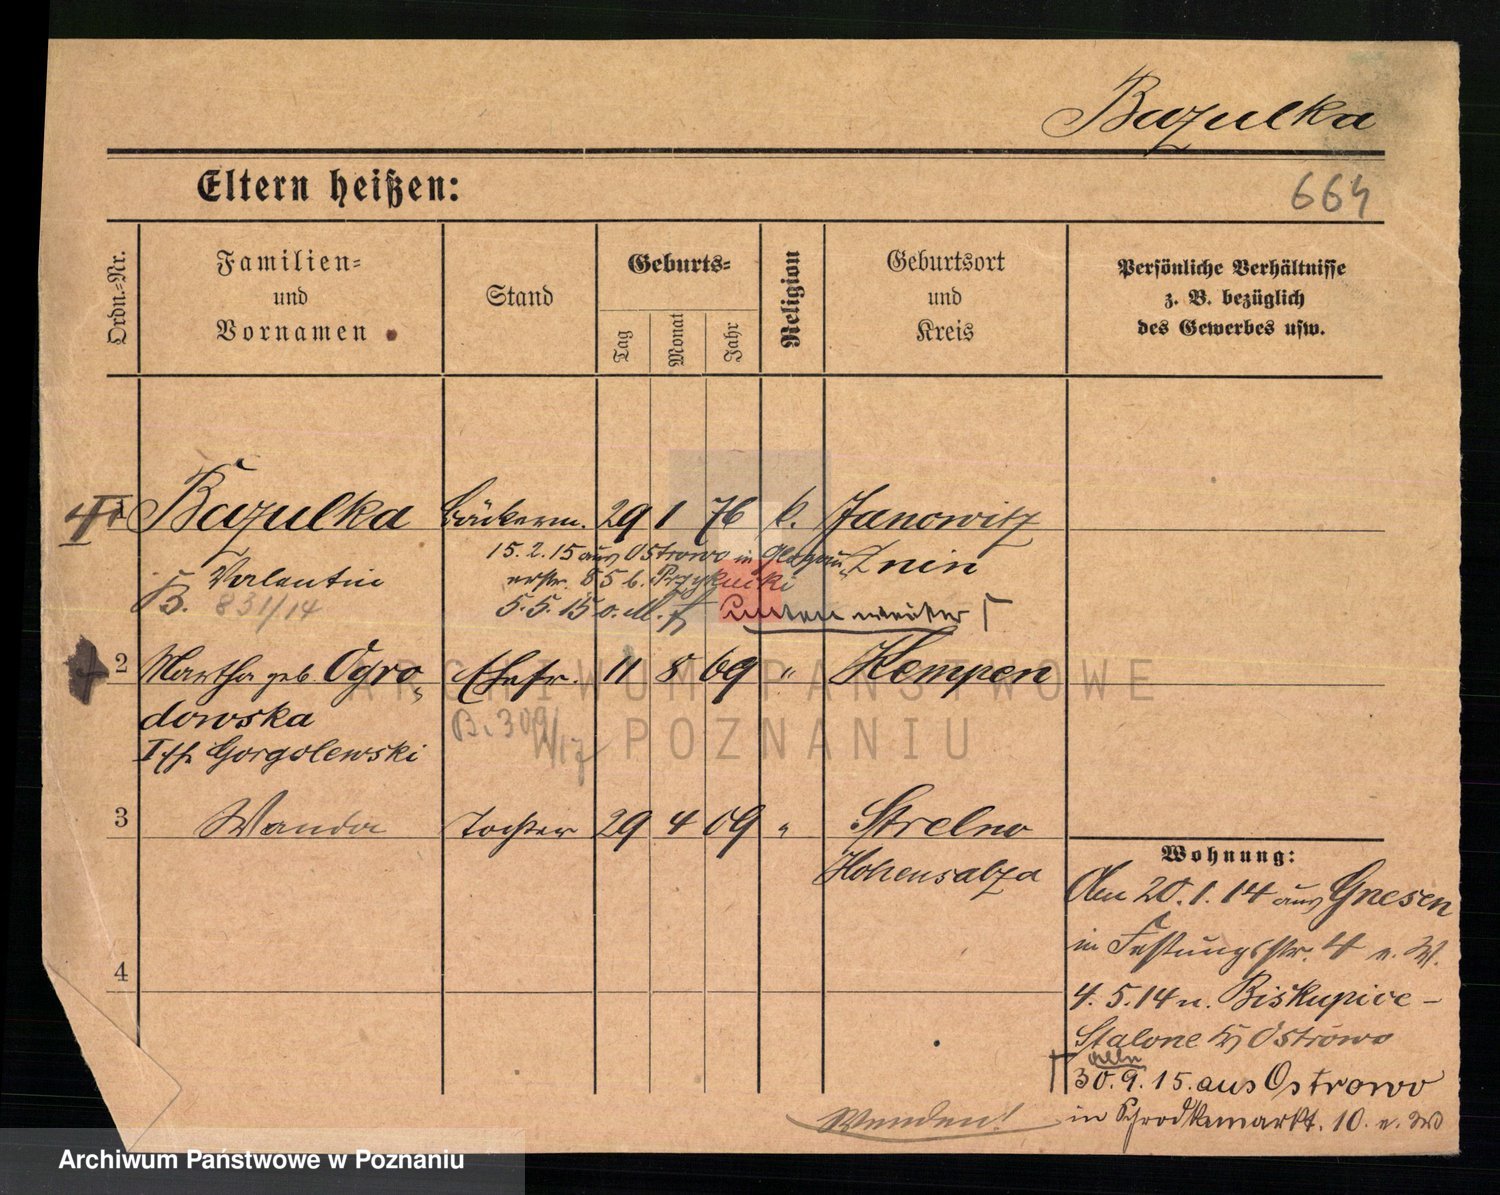 Bazulka
Eltern heißen:
664
Ordn.-Nr.
Familien-
und
Vornamen
Stand
Geburts-
Tag
Monat
Jahr
Religion
Geburtsort
und
Kreis
Persönliche Verhältnisse
z. B. bezüglich
des Gewerbes usw.
Bazulka Bäckerm. 29 1 76 k. Janowitz
15.2.15 aus Ostrowo in Glogau Znin
Valentin
B. 831/14
5.5.15 unten weiter
2 Martha geb. Ogro- Ehefr. 11 8 69 " Kempen
dowska
Gorgolewski
B. 309/17
3 Wanda Tochter 29 4 09 " Strelno
Hohensalza
4
Wohnung:
Am 20.1.14 aus Gnesen
in Festungsstr. 4 e. W.
4.5.14 n. Biskupice-
Stalone Ostrowo
30.9.15. aus Ostrowo
in 10. e. W
Wenden!
ARCHIWUM PAŃSTWOWE
W POZNANIU
Archiwum Państwowe w Poznaniu